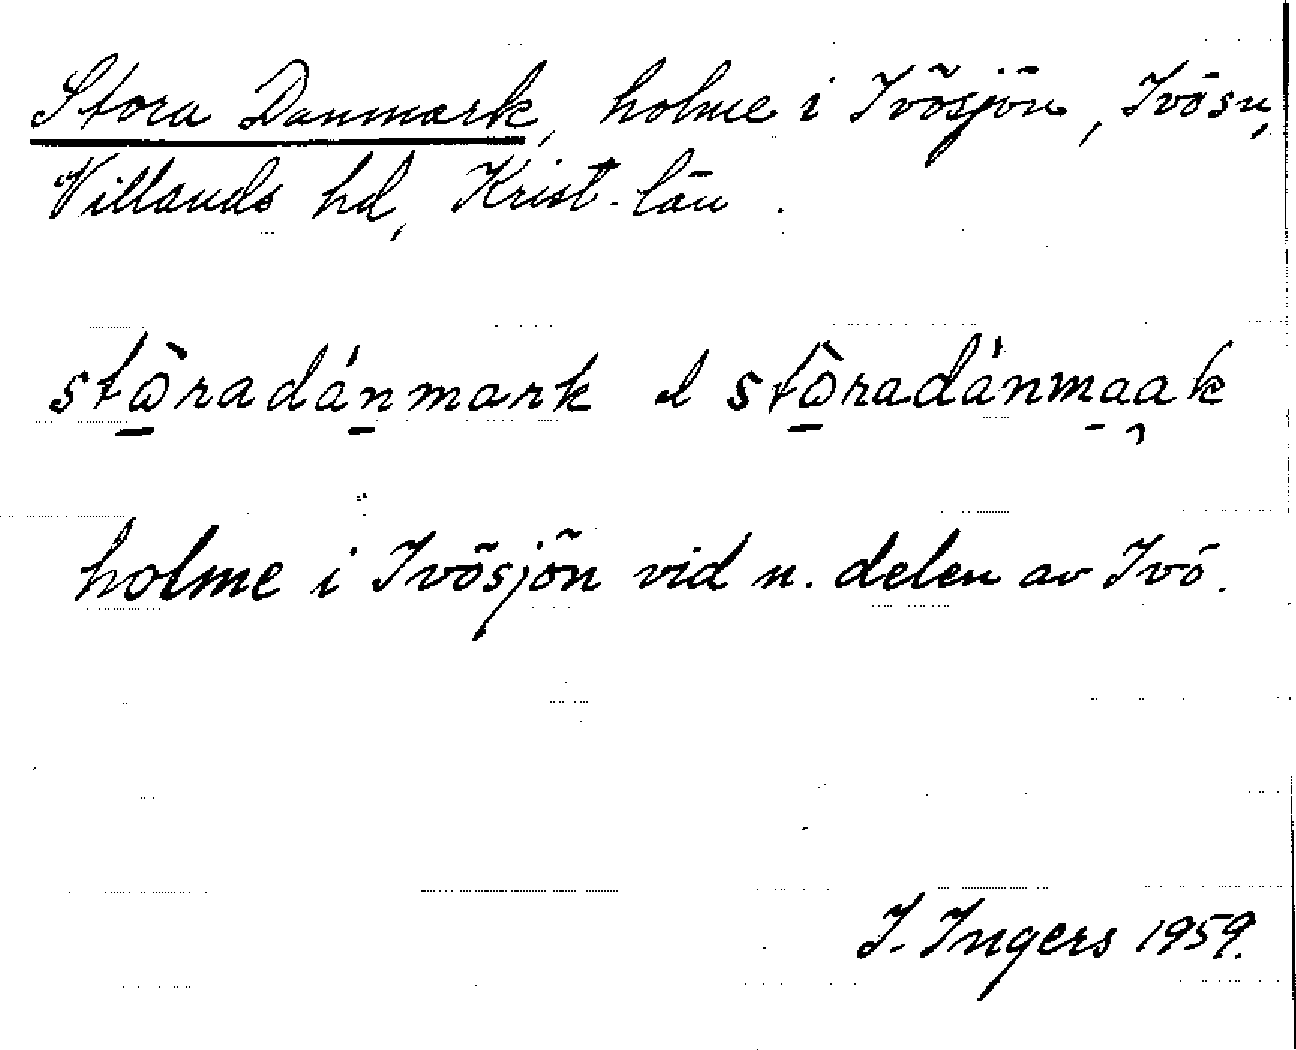 Stora Danmark, holme i Ivösjön, Ivö sn,
Villands hd, Krist. län.
stòradánmark el stòradánmaak
holme i Ivösjön vid n. delen av Ivö.
I. Ingers 1959.